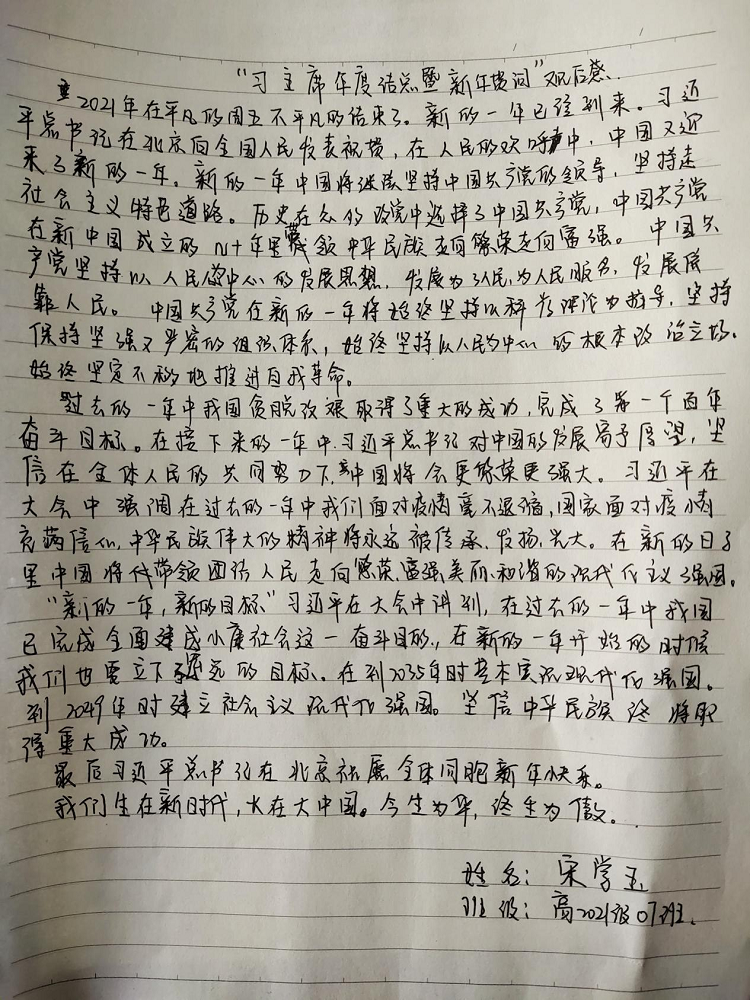 “习主席年度结总暨新年贺词”观后感.
2021年在平凡的周五不平凡的结束了。新的一年已经到来。习近
平总书记在北京向全国人民发表祝贺，在人民的欢呼中，中国又迎
来了新的一年。新的一年中国将继续坚持中国共产党的领导，坚持走
社会主义特色道路。历史在众的政党中选择了中国共产党，中国共产党
在新中国成立的几十年里带领中华民族走向繁荣走向富强。中国共
产党坚持以人民为中心的发展思想，发展为了人民，为人民服务，发展依
靠人民。中国共产党在新的一年将始终坚持以科学理论为指导，坚持
保持坚强又严密的组织体系，始终坚持以人民为中心的根本政治立场。
始终坚定不移地推进自我革命。
过去的一年中我国贫脱攻艰取得了重大的成功，完成了第一个百年
奋斗目标。在接下来的一年中，习近平总书记对中国的发展寄予厚望，坚
信在全体人民的共同努力下，中国将会更繁荣更强大。习近平在
大会中强调在过去的一年中我们面对疫情毫不退缩，国家面对疫情
充满信心，中华民族伟大的精神将永远被传承、发扬、光大。在新的日子
里中国将代带领团结人民走向繁荣、富强、美丽、和谐的现代化主义强国。
“新的一年，新的目标”习近平在大会中讲到，在过去的一年中我国
已完成全面建成小康社会这一奋斗目的，在新的一年开始的时候
我们也要立下远的目标。在到2035年时基本实现现代化强国。
到2049年时建立社会主义现代化强国。坚信中华民族终将取
得重大成功。
最后习近平总书记在北京祝愿全体同胞新年快乐。
我们生在新时代，长在大中国。今生为华，终生为傲。
姓名：宋学玉
班级：高2021级07班.